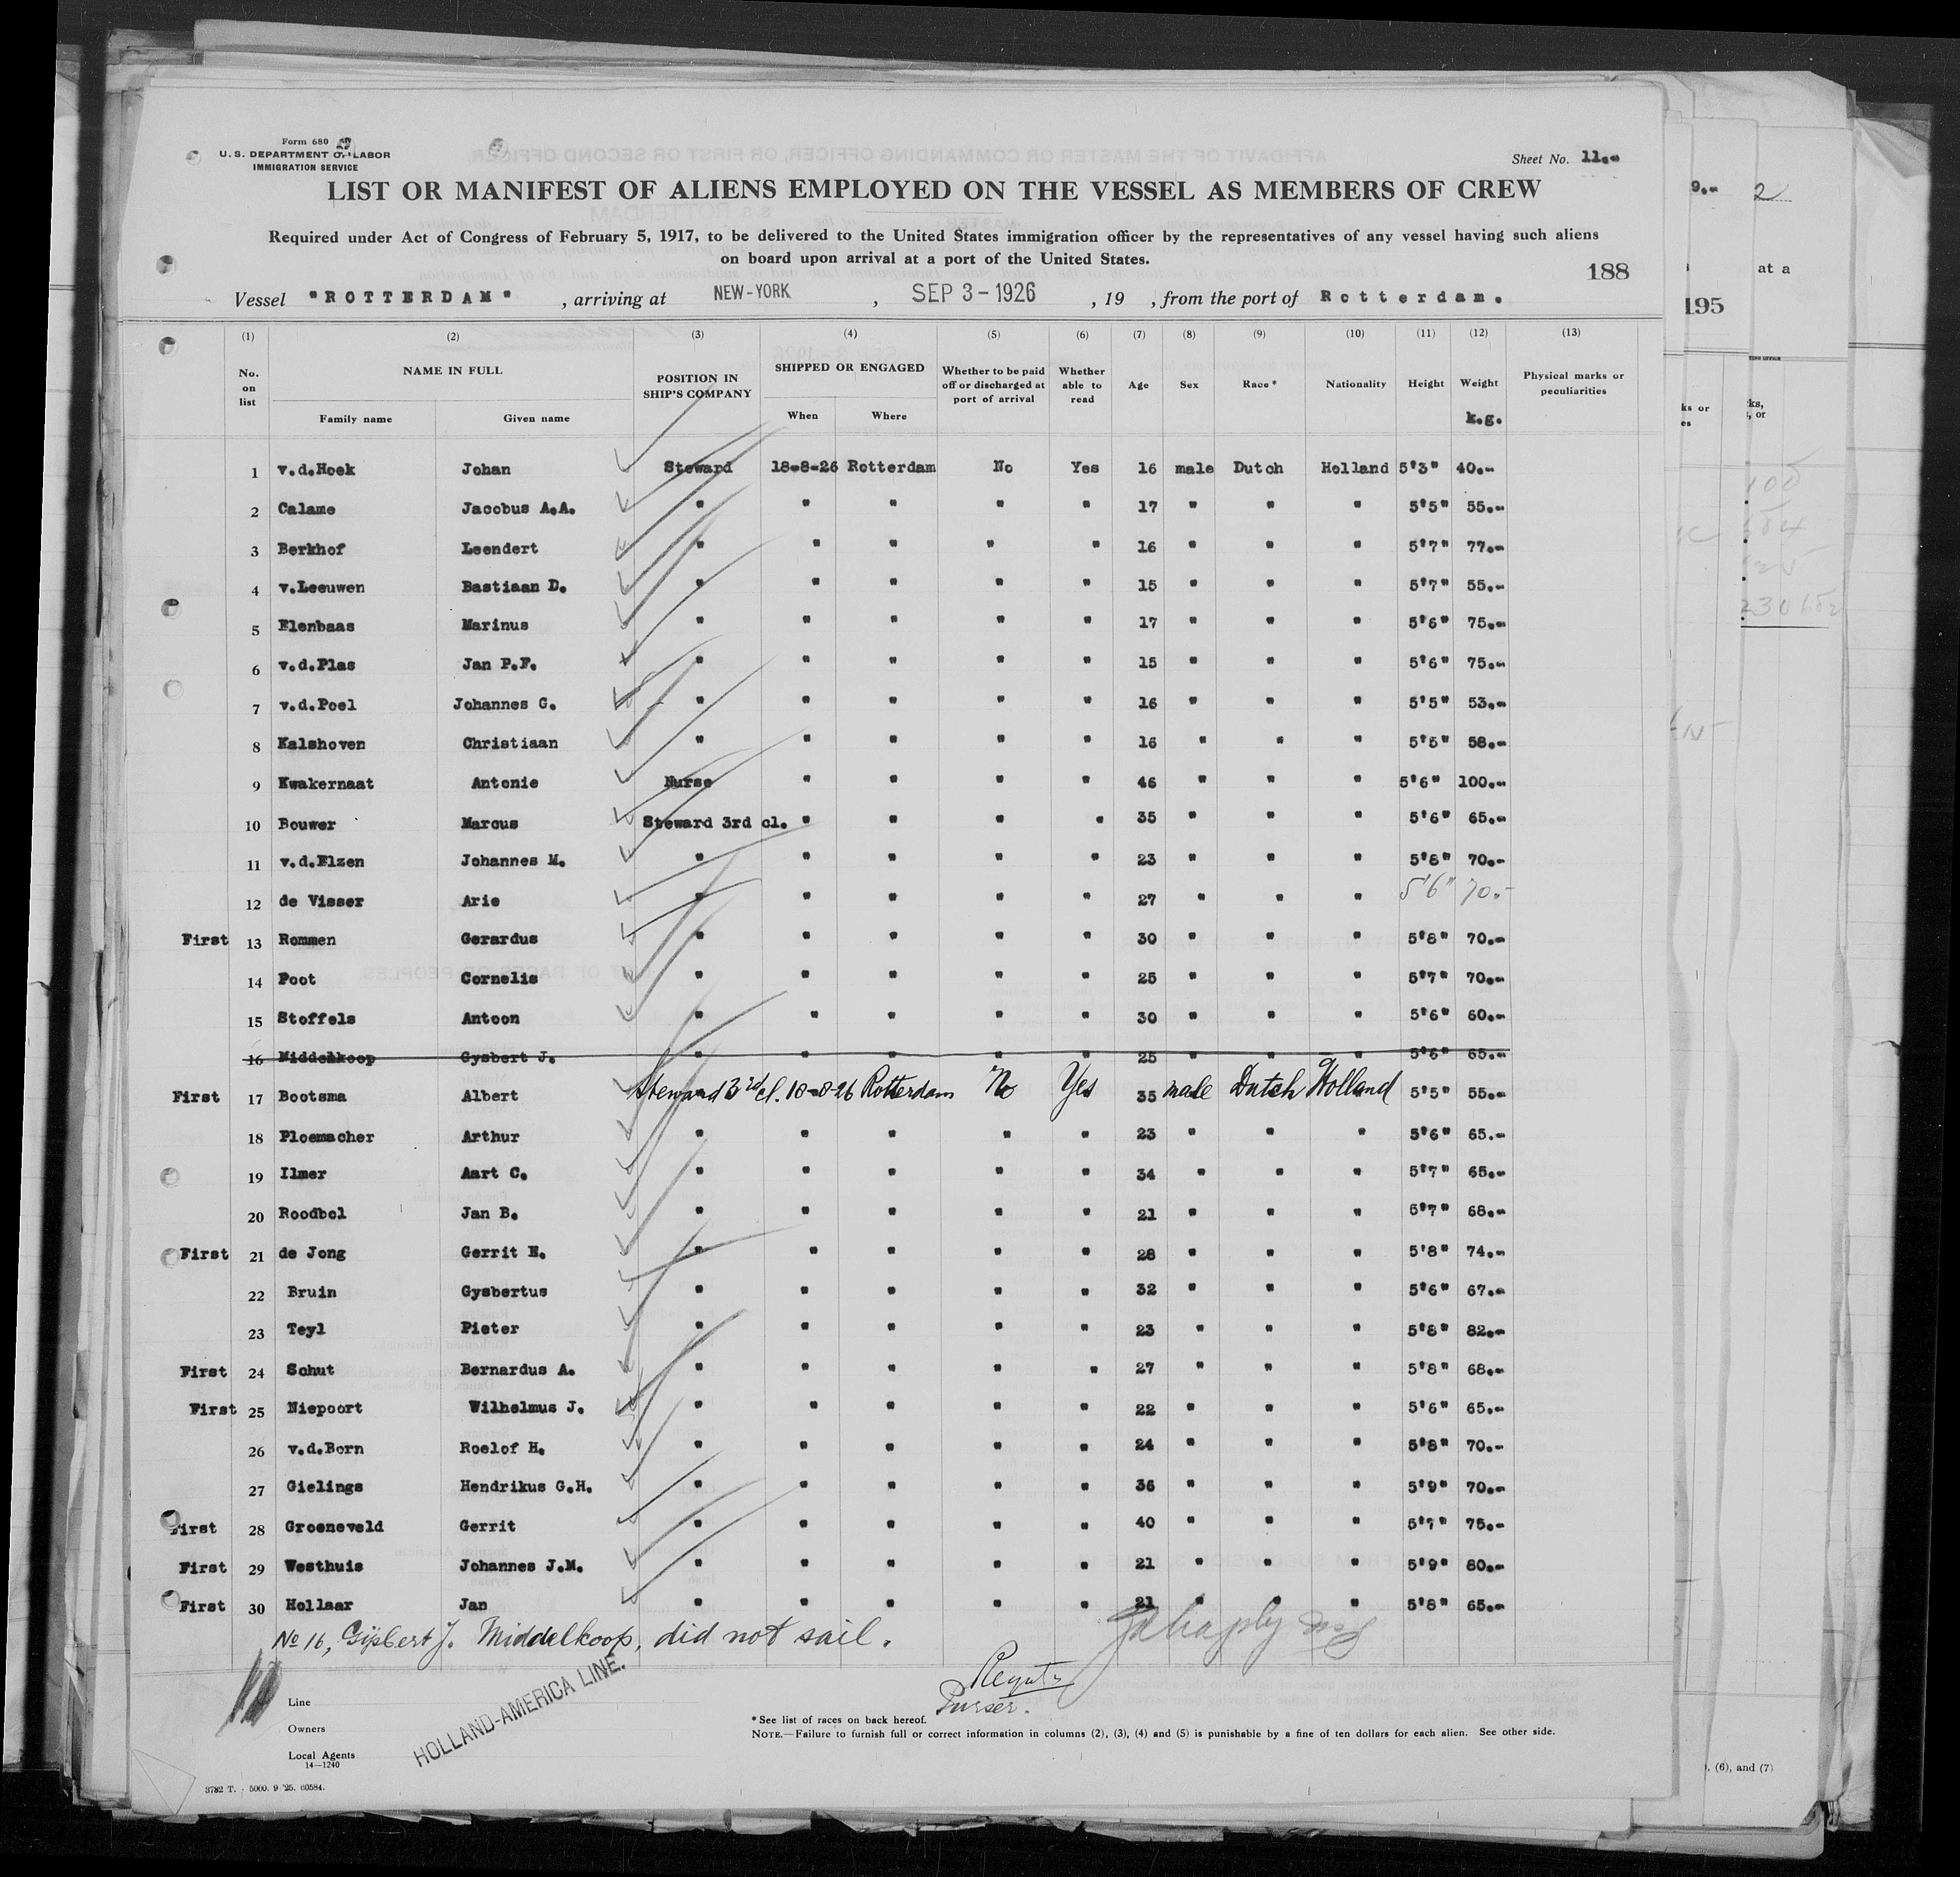 Form 680
U. S. DEPARTMENT OF LABOR
IMMIGRATION SERVICE
Sheet No. 11.-
LIST OR MANIFEST OF ALIENS EMPLOYED ON THE VESSEL AS MEMBERS OF CREW
Required under Act of Congress of February 5, 1917, to be delivered to the United States immigration officer by the representatives of any vessel having such aliens
on board upon arrival at a port of the United States.
188
Vessel "ROTTERDAM" , arriving at NEW-YORK , SEP 3-1926 , 19 , from the port of Rotterdam.
(1) (2) (3) (4) (5) (6) (7) (8) (9) (10) (11) (12) (13)
No. on list NAME IN FULL Family name Given name POSITION IN SHIP'S COMPANY SHIPPED OR ENGAGED When Where Whether to be paid off or discharged at port of arrival Whether able to read Age Sex Race* Nationality Height Weight k.g. Physical marks or peculiarities
1 v.d.Hoek Johan Steward 18-8-26 Rotterdam No Yes 16 male Dutch Holland 5'3" 40.-
2 Calame Jacobus A.A. " " " " " 17 " " " 5'5" 55.-
3 Berkhof Leendert " " " " " 16 " " " 5'7" 77.-
4 v.Leeuwen Bastiaan D. " " " " " 15 " " " 5'7" 55.-
5 Elenbaas Marinus " " " " " 17 " " " 5'6" 75.-
6 v.d.Plas Jan P.F. " " " " " 15 " " " 5'6" 75.-
7 v.d.Poel Johannes G. " " " " " 16 " " " 5'5" 53.-
8 Kalshoven Christiaan " " " " " 16 " " " 5'5" 58.-
9 Kwakernaat Antonie Nurse " " " " 46 " " " 5'6" 100.-
10 Bouwer Marcus Steward 3rd cl. " " " " 35 " " " 5'6" 65.-
11 v.d.Elzen Johannes M. " " " " " 23 " " " 5'8" 70.-
12 de Visser Arie " " " " " 27 " " " 5'6" 70.-
First 13 Rommen Gerardus " " " " " 30 " " " 5'8" 70.-
14 Poot Cornelis " " " " " 25 " " " 5'7" 70.-
15 Stoffels Antoon " " " " " 30 " " " 5'6" 60.-
16 Middelkoop Gysbert J. " " " " " 25 " " " 5'6" 65.-
First 17 Bootsma Albert Steward 3rd cl. 18-8-26 Rotterdam No Yes 35 male Dutch Holland 5'5" 55.-
18 Ploemacher Arthur " " " " " 23 " " " 5'6" 65.-
19 Ilmer Aart C. " " " " " 34 " " " 5'7" 65.-
20 Roodbol Jan B. " " " " " 21 " " " 5'7" 68.-
First 21 de Jong Gerrit E. " " " " " 28 " " " 5'8" 74.-
22 Bruin Gysbertus " " " " " 32 " " " 5'6" 67.-
23 Teyl Pieter " " " " " 23 " " " 5'8" 82.-
First 24 Schut Bernardus A. " " " " " 27 " " " 5'8" 68.-
First 25 Niepoort Wilhelmus J. " " " " " 22 " " " 5'6" 65.-
26 v.d.Born Roelof H. " " " " " 24 " " " 5'8" 70.-
27 Gielings Hendrikus G.H. " " " " " 36 " " " 5'9" 70.-
First 28 Groeneveld Gerrit " " " " " 40 " " " 5'7" 75.-
First 29 Westhuis Johannes J.M. " " " " " 21 " " " 5'9" 80.-
First 30 Hollaar Jan " " " " " 21 " " " 5'8" 65.-
No 16, Gijsbert J. Middelkoop, did not sail.
Purser.
Line
Owners
Local Agents
14—1240
HOLLAND-AMERICA LINE.
*See list of races on back hereof.
NOTE.—Failure to furnish full or correct information in columns (2), (3), (4) and (5) is punishable by a fine of ten dollars for each alien. See other side.
3782 T. - 5000. 9 '25. 60584.
9.-
2
at a
195
, (6), and (7)